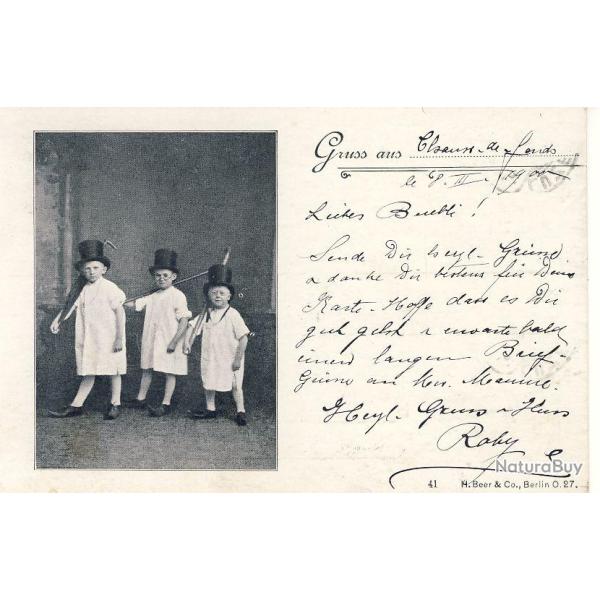 Gruss aus Chaux-de-fonds
le 8. III. 1900
Liebes Buebli!
Sende Dir herzl. Grüsse
& danke Dir bestens für Deine
Karte. Hoffe dass es Dir
gut geht & erwarte bald
einen langen Brief.
Grüsse an Mr. Maurice.
Herzl. Gruss & Kuss
Roby
NaturaBuy
41 H. Beer & Co., Berlin O. 27.